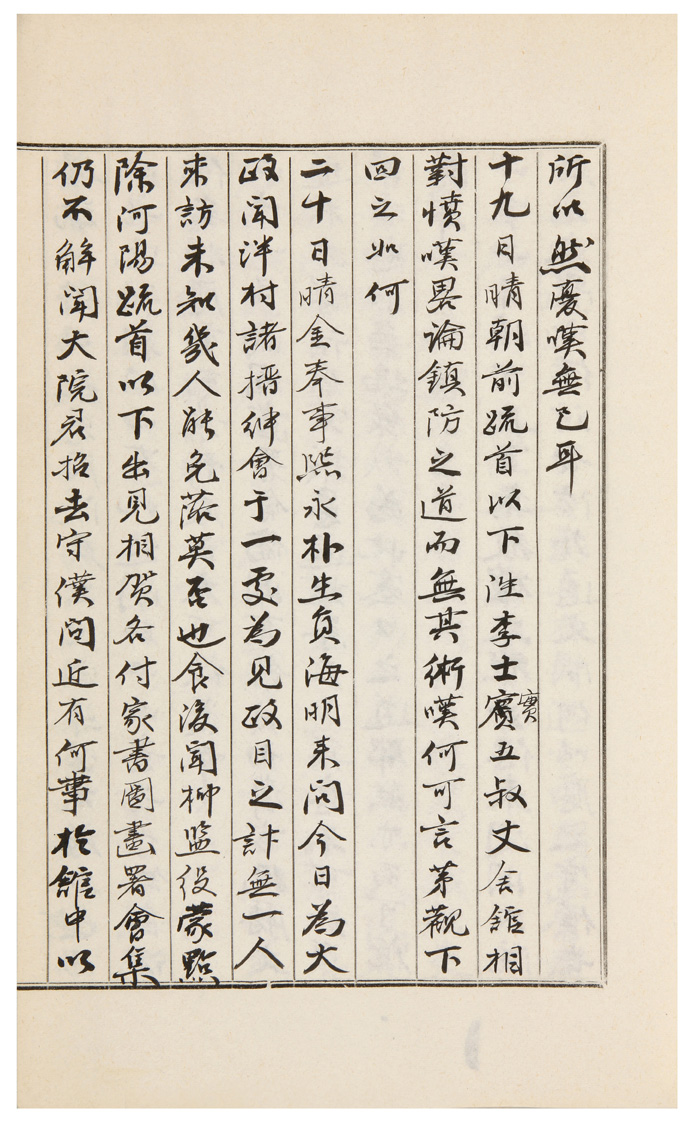 所以然憂嘆無已耳
十九日晴朝前疏首以下淮李士賓五叔丈舍舘相
實
對憤嘆畧論鎮防之道而無其術嘆何可言苐觀下
回之如何
二十日晴金奉事熙永朴生員海明来問今日為大
政聞泮村諸搢紳會于一處為見政目之計無一人
来訪未知幾人能免落莫否也食後聞柳監役蒙點
除河陽疏首以下出見相賀各付家書圖畫署會集
仍不解聞大院君招去守僕問近有何事於舘中以